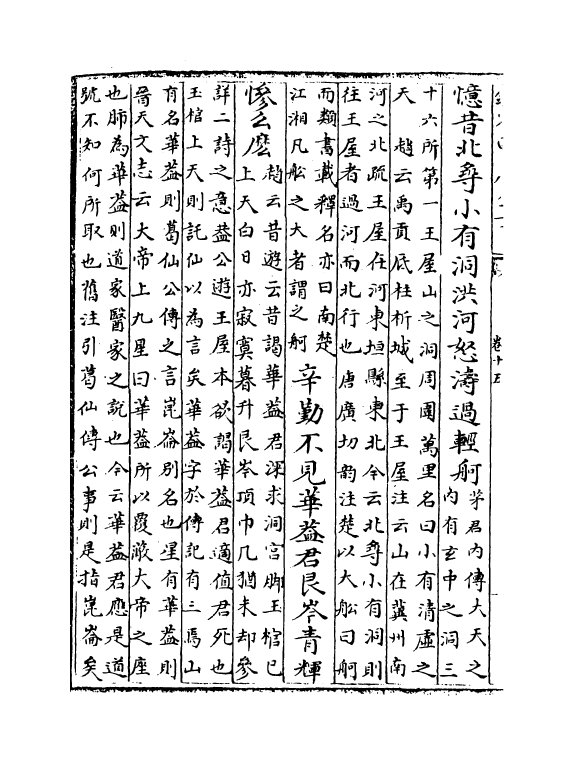 憶昔北尋小有洞洪河怒濤過輕舸
茅君内傳大天之
内有玄中之洞三
十六所第一王屋山之洞周圍萬里名曰小有清虛之
天 趙云禹貢底柱析城至于王屋注云山在冀州南
河之北疏王屋在河東垣縣東北今云北尋小有洞則
往王屋者過河而北行也唐廣切韵注楚以大船曰舸
而類書載釋名亦曰南楚
江湘凡船之大者謂之舸
辛勤不見華葢君艮岑青輝
慘么麽
趙云昔遊云昔謁華葢君深求洞宫脚玉棺已
上天白日亦寂寞暮升艮岑頂巾几猶未却參
詳二詩之意葢公遊王屋本欲謁華葢君適值君死也
玉棺上天則託仙以為言矣華葢字於傳記有三焉山
有名華葢則葛仙公傳之言崑崙别名也星有華葢則
晉天文志云大帝上九星曰華葢所以覆蔽大帝之座
也肺為華葢則道家醫家之說也今云華葢君應是道
號不知何所取也舊注引葛仙傳公事則是指崑崙矣
卷十五